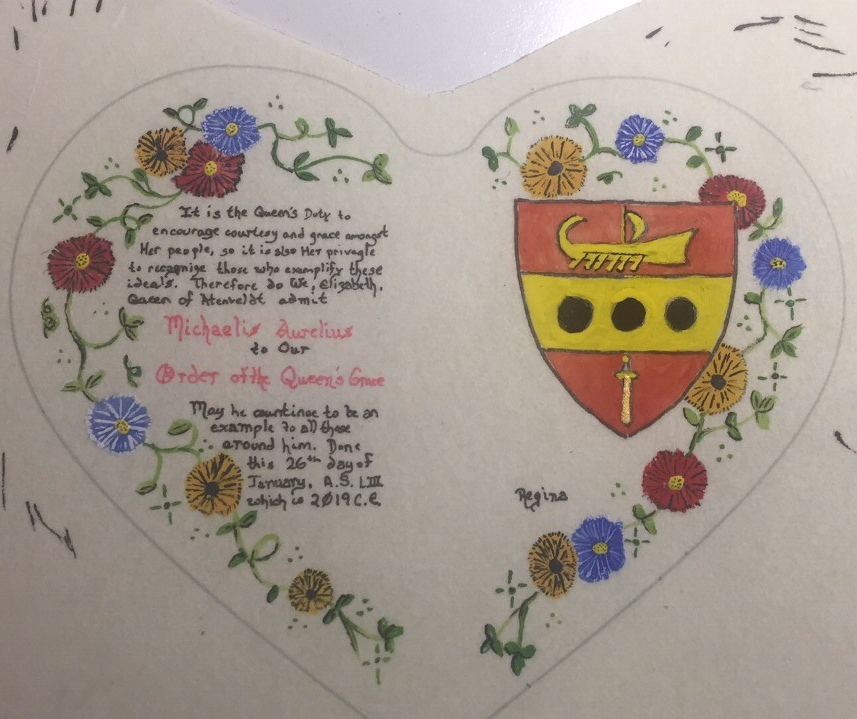 It is the Queen's Duty to
encourage courtesy and grace amongst
Her people, so it is also Her privagle
to recognize those who examplify these
ideals. Therefore do We, Elizabeth,
Queen of Atenveldt admit
Michaelis Aurelius
to Our
Order of the Queen's Grace
May he countinue to be an
example to all those
around him. Done
this 26th day of
January, A.S. LIII
which is 2019 C.E.
Regina